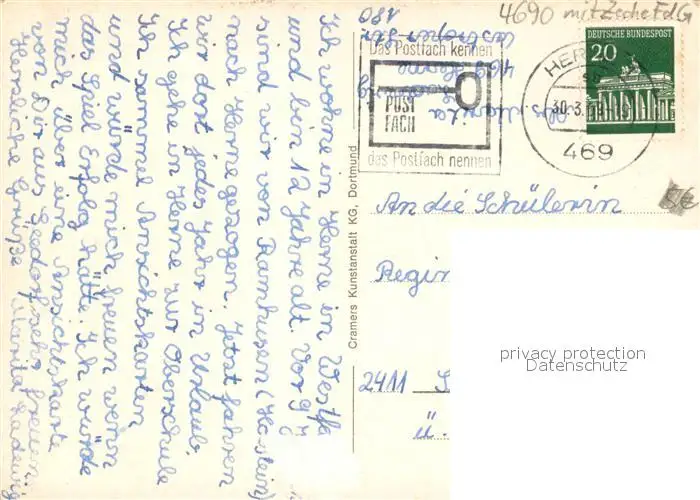 Ich wohne in Herne in Westfa
und bin 12 Jahre alt. Vor 9 J
sind wir von Ramhusen (Holstein)
nach Herne gezogen. Jetzt fahren
wir dort jedes Jahr in Urlaub.
Ich gehe in Herne zur Oberschule
Ich sammel Ansichtskarten
und würde mich freuen wenn
das Spiel Erfolg hätte. Ich würde
mich über eine Ansichtskarte
von Dir aus Seedorf sehr freuen.
Herzliche Grüße Marita Ladewig
Cramers Kunstanstalt KG, Dortmund
4690 mit Zeche FdG
Das Postfach kennen
POST
FACH
das Postfach nennen
HER
30.3.
469
DEUTSCHE BUNDESPOST
20
Marita
469 Herne
An die Schülerin
Regin
2411 S
ü.
privacy protection
Datenschutz